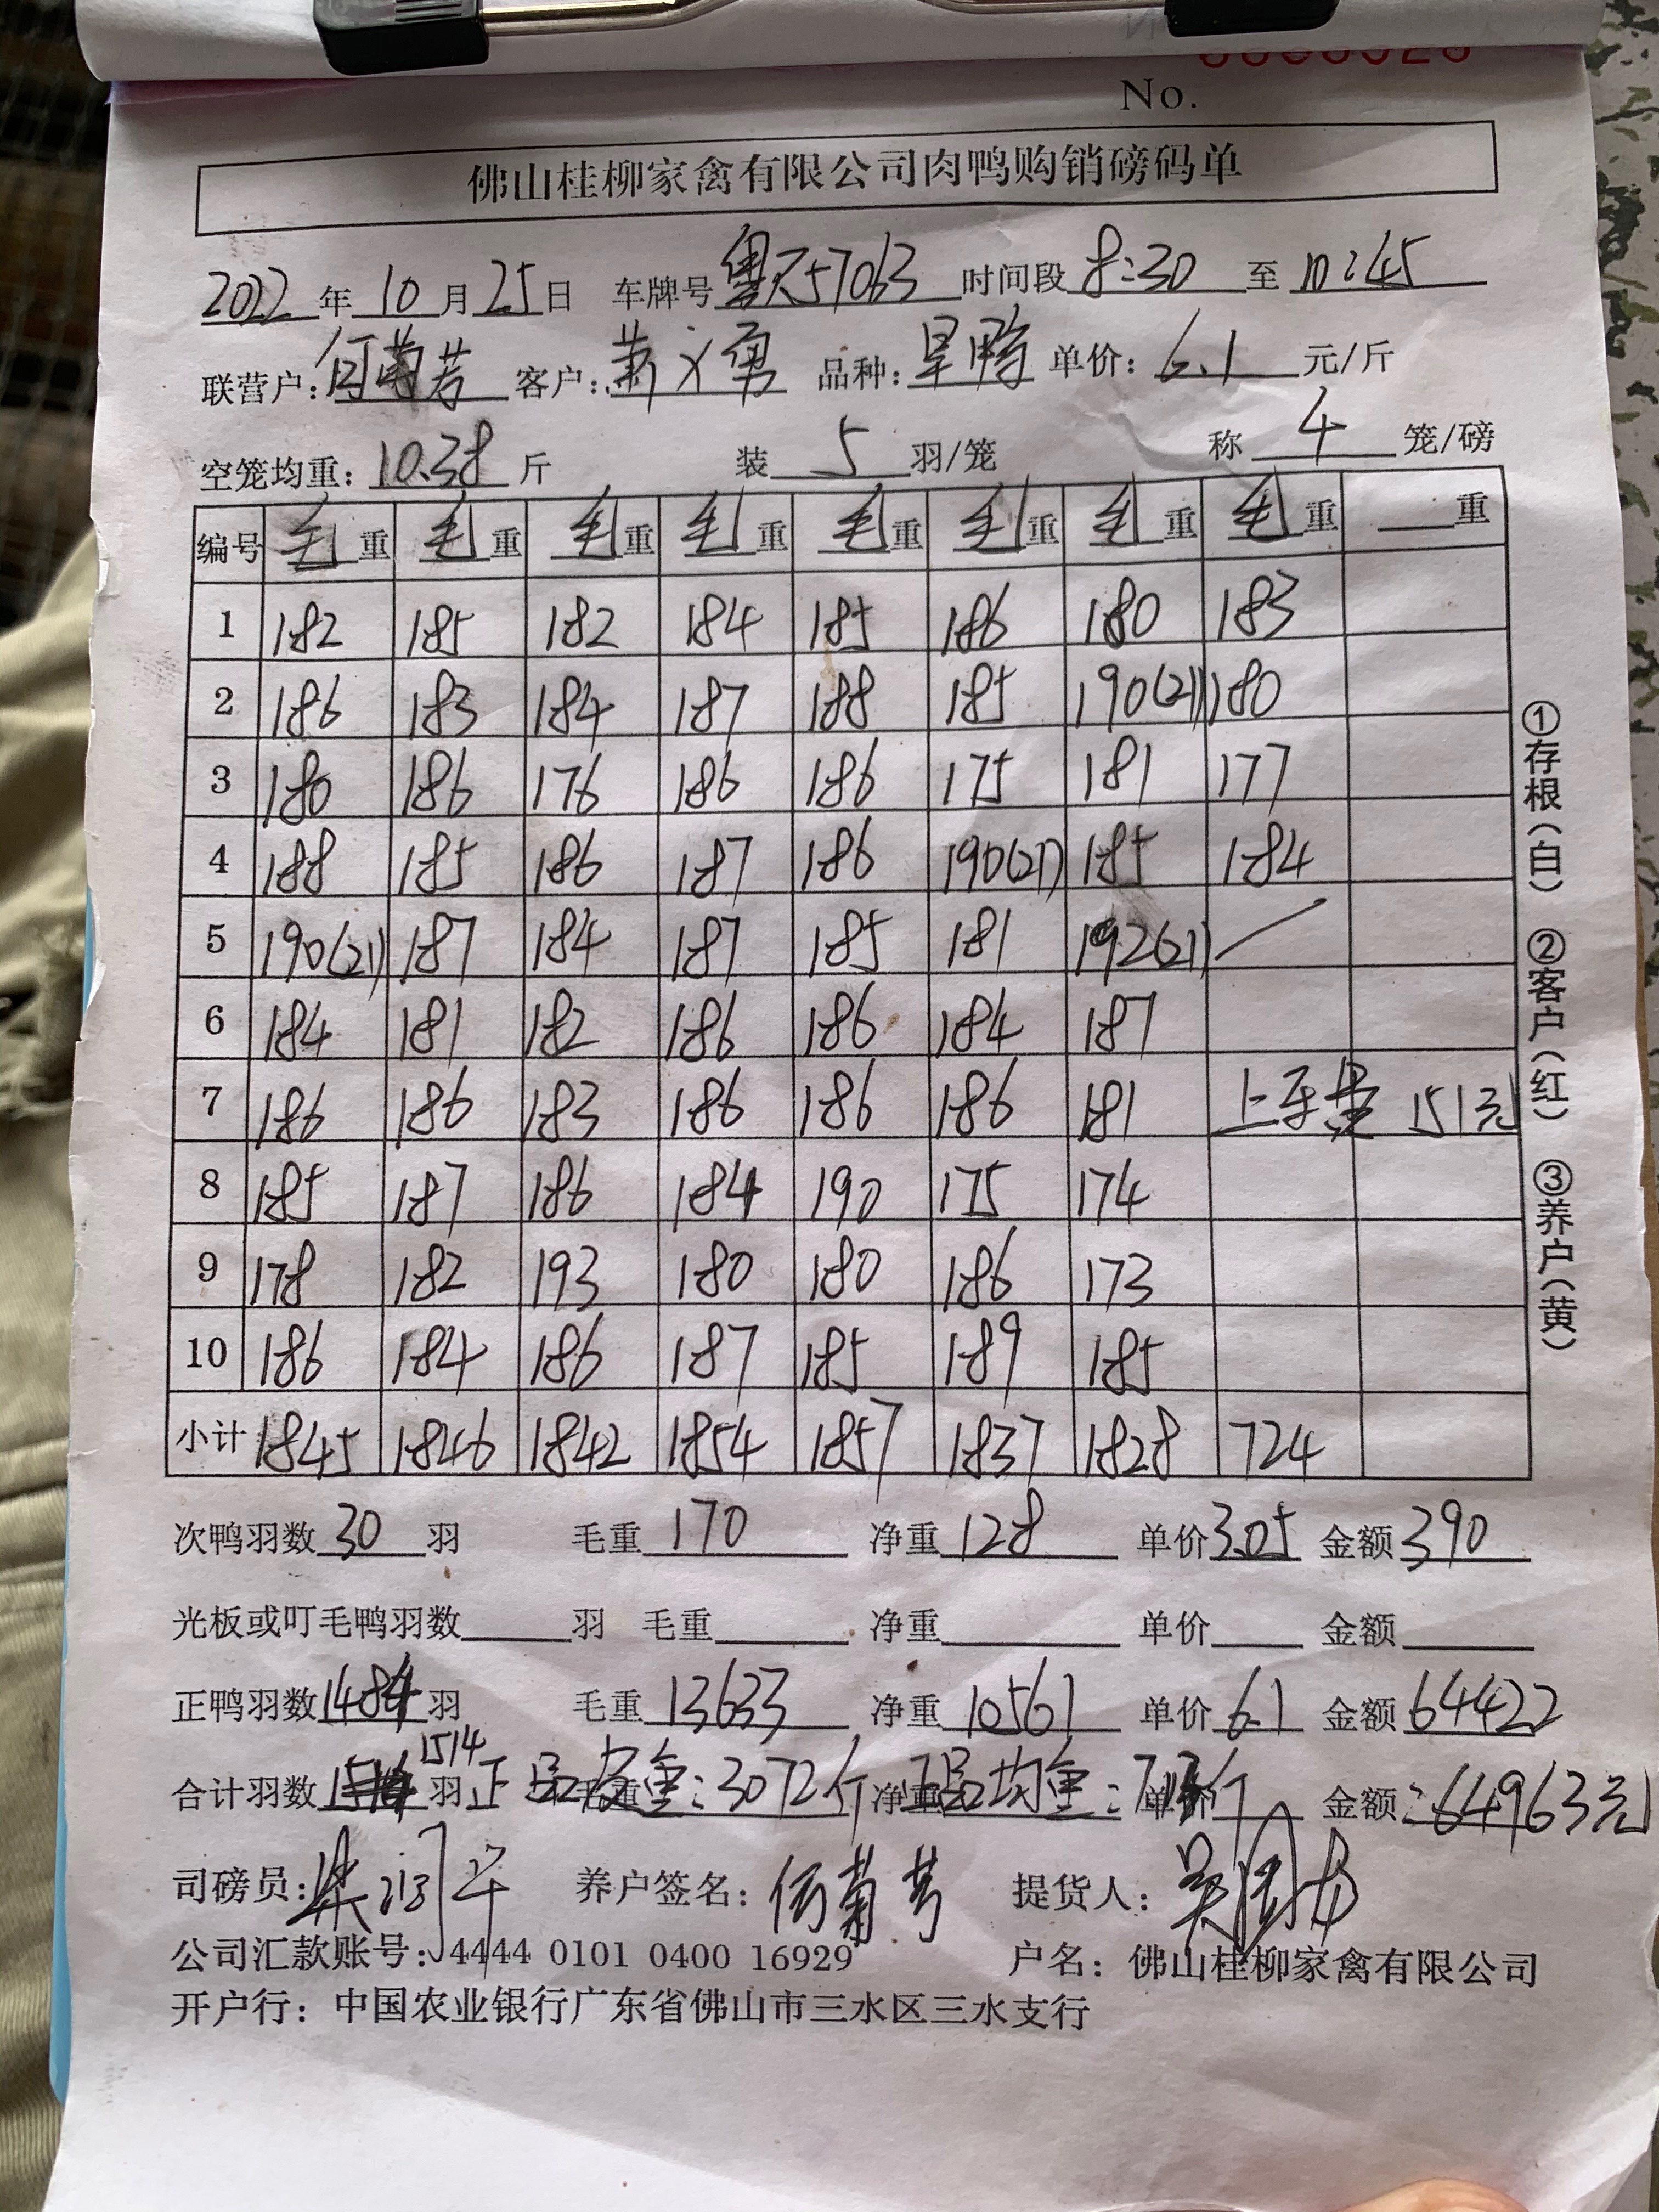 No.
佛山桂柳家禽有限公司肉鸭购销磅码单
2022 年 10 月 25 日 车牌号 57063 时间段 8:30 至 10:45
联营户: 何菊芳 客户: 勇 品种: 旱鸭 单价: 6.1 元/斤
空笼均重: 10.38 斤 装 5 羽/笼 称 4 笼/磅
编号 毛重 毛重 毛重 毛重 毛重 毛重 毛重 毛重 重
1 182 185 182 184 185 186 180 183
2 186 183 184 187 188 185 190(21) 180
3 180 186 176 186 186 175 181 177
4 188 185 186 187 186 190(21) 185 184
5 190(21) 187 184 187 185 181 192(21)
6 184 181 182 186 186 184 187
7 186 186 183 186 186 186 181 上车费 151元
8 185 187 186 184 190 175 174
9 178 182 193 180 180 186 173
10 186 184 186 187 185 189 185
小计 1845 1846 1842 1854 1857 1837 1828 724
①存根(白) ②客户(红) ③养户(黄)
次鸭羽数 30 羽 毛重 170 净重 128 单价 3.05 金额 390
光板或叮毛鸭羽数 羽 毛重 净重 单价 金额
正鸭羽数 1484 羽 毛重 13633 净重 10561 单价 6.1 金额 64422
合计羽数 1514 羽 正品皮重: 3072斤 正品均重: 金额: 64963元
司磅员: 养户签名: 何菊芳 提货人: 吴
公司汇款账号: 4444 0101 0400 16929 户名: 佛山桂柳家禽有限公司
开户行: 中国农业银行广东省佛山市三水区三水支行